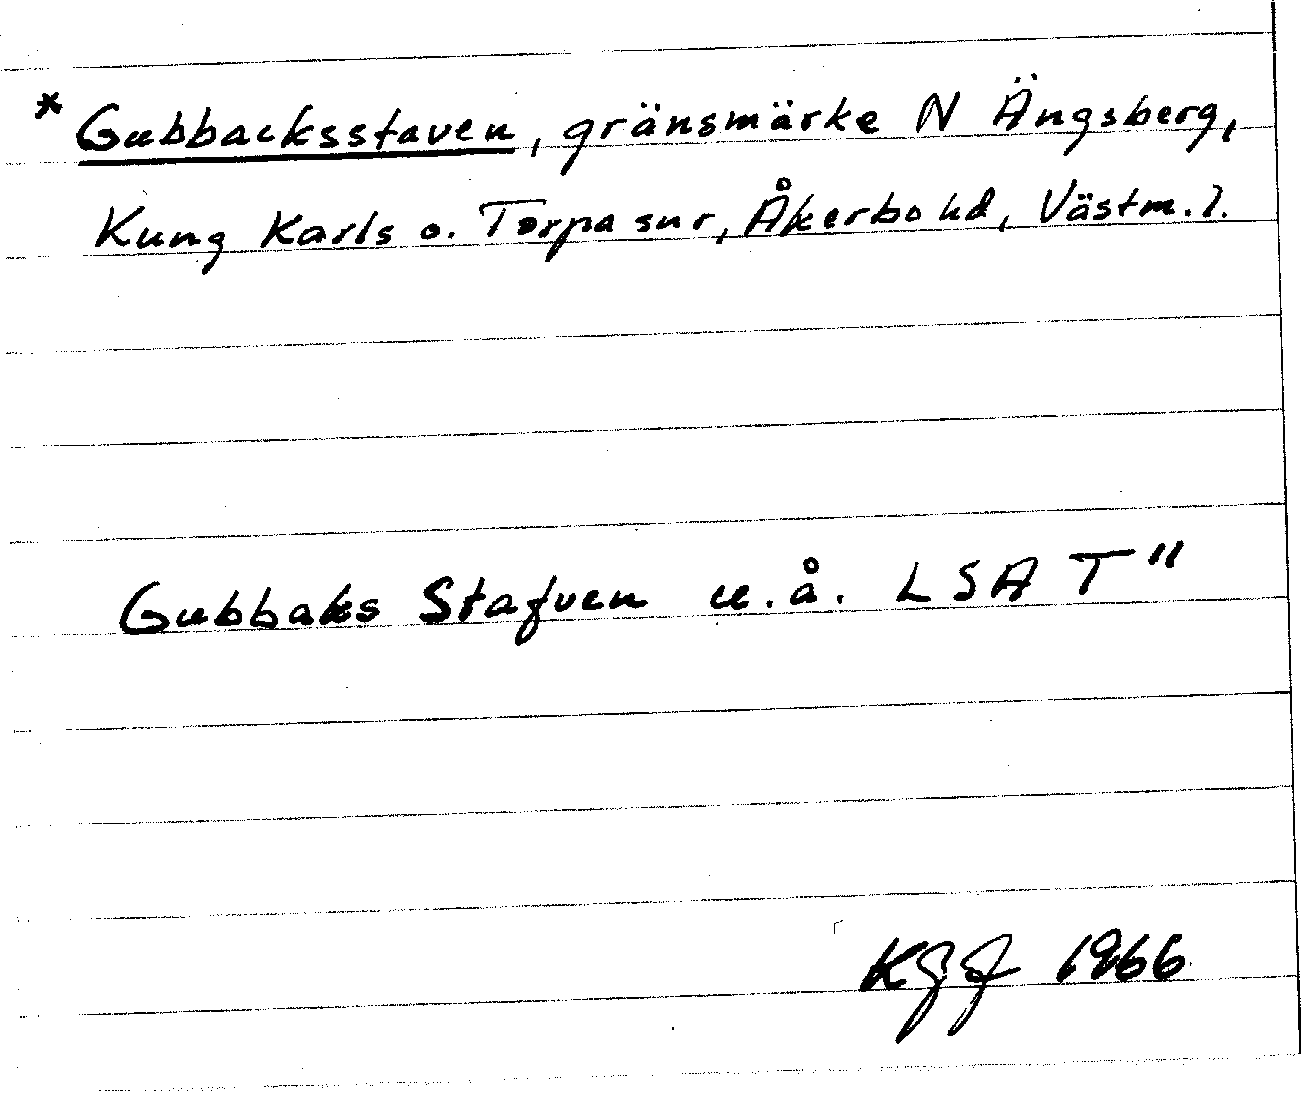 * Gubbacksstaven, gränsmärke N Ängsberg,
Kung Karls o. Torpa snr, Åkerbo hd, Västm. l.
Gubbaks Stafven u.å. LSA T"
1966